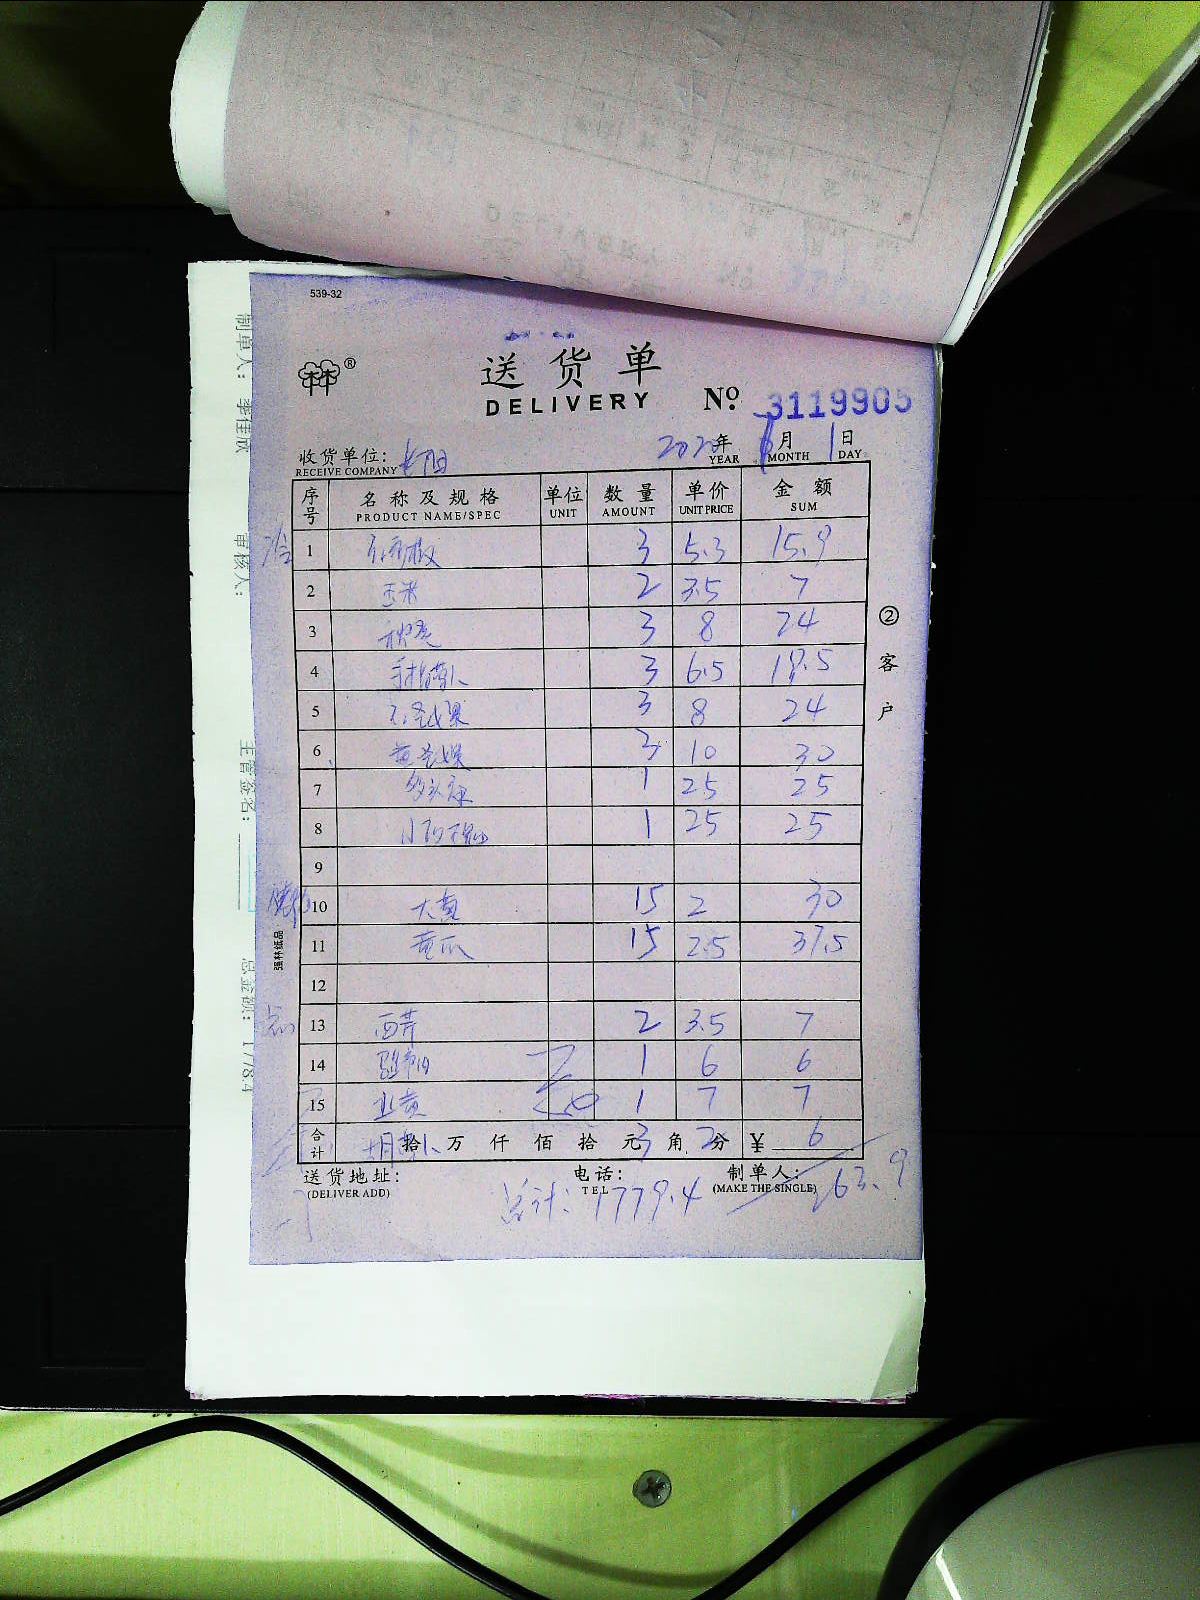 539-32
送货单
DELIVERY
No. 3119905
收货单位:
RECEIVE COMPANY
2020年 6月 1日
YEAR MONTH DAY
序号 名称及规格 单位 数量 单价 金额
PRODUCT NAME/SPEC UNIT AMOUNT UNIT PRICE SUM
1 3 5.3 15.9
2 玉米 2 3.5 7
3 秋葵 3 8 24
4 手指萝卜 3 6.5 19.5
5 3 8 24
6 3 10 30
7 1 25 25
8 1 25 25
9
10 大黄 15 2 30
11 黄瓜 15 2.5 37.5
12
13 西芹 2 3.5 7
14 1 6 6
15 韭黄 1 7 7
合计 拾 万 仟 佰 拾 元 角 分 ¥
胡萝卜 3 2 6
送货地址:
(DELIVER ADD)
电话:
TEL
制单人:
(MAKE THE SINGLE)
263.9
总计: 1779.4
②客户
强林纸品
制单人: 李佳欣
审核人:
主管签名:
总金额: 1778.4